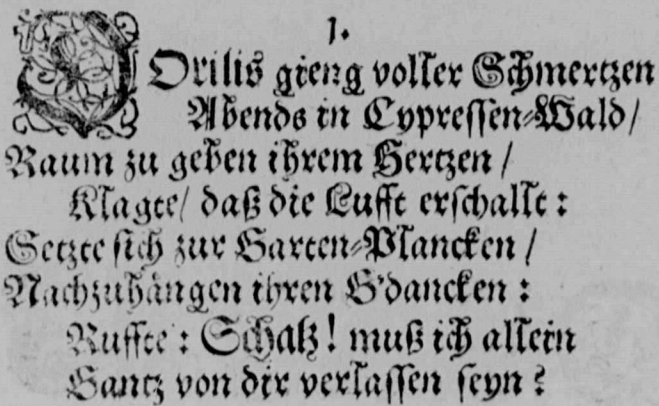 1.
DOrilis gieng voller Schmertzen
Abends in Cypressen-Wald/
Raum zu geben ihrem Hertzen/
Klagte/ daß die Lufft erschallt:
Setzte sich zur Garten-Plancken/
Nachzuhängen ihren G'dancken:
Ruffte: Schatz! muß ich allein
Gantz von dir verlassen seyn?